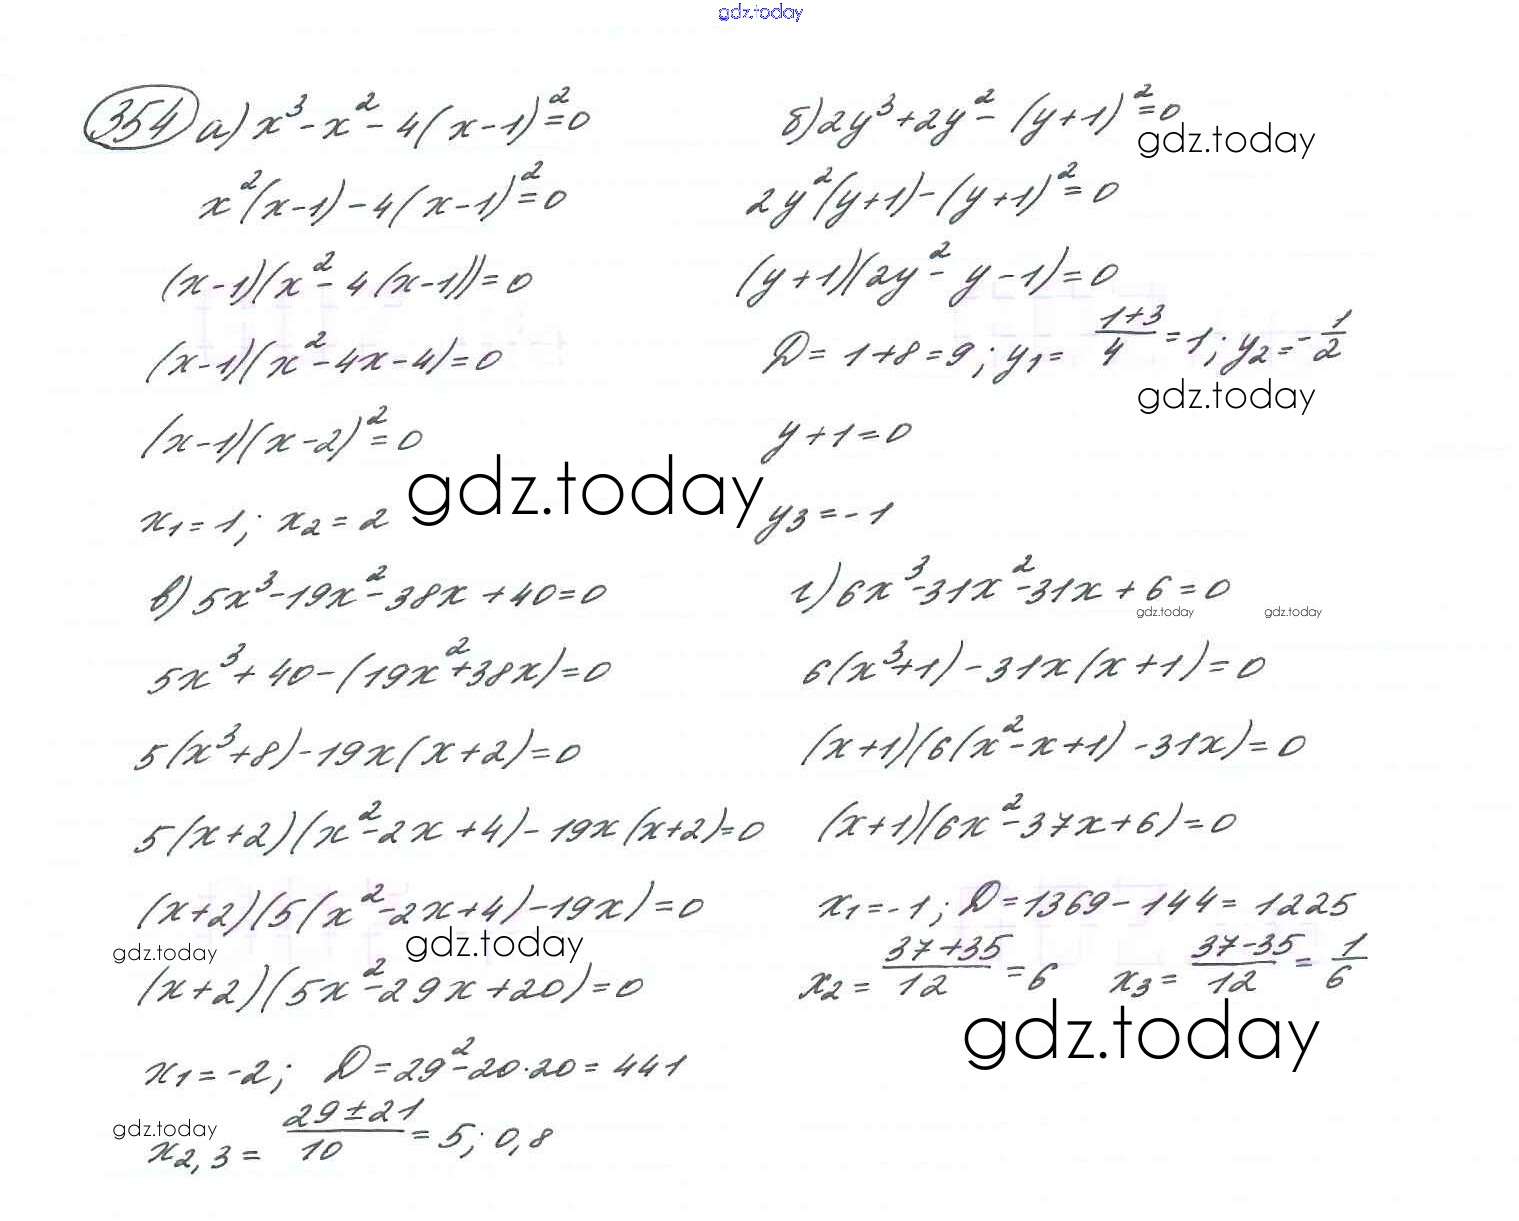 gdz.today
354 а) x³ - x² - 4(x-1)² = 0
x²(x-1) - 4(x-1)² = 0
(x-1)(x² - 4(x-1)) = 0
(x-1)(x² - 4x - 4) = 0
(x-1)(x-2)² = 0
x₁ = 1; x₂ = 2
б) 2y³ + 2y² - (y+1)² = 0
gdz.today
2y²(y+1) - (y+1)² = 0
(y+1)(2y² - y - 1) = 0
D = 1+8 = 9; y₁ = (1+3)/4 = 1; y₂ = -1/2
gdz.today
y+1 = 0
gdz.today
y₃ = -1
в) 5x³ - 19x² - 38x + 40 = 0
5x³ + 40 - (19x² + 38x) = 0
5(x³+8) - 19x(x+2) = 0
5(x+2)(x² - 2x + 4) - 19x(x+2) = 0
(x+2)(5(x² - 2x + 4) - 19x) = 0
gdz.today gdz.today
(x+2)(5x² - 29x + 20) = 0
x₁ = -2; D = 29² - 20·20 = 441
gdz.today
x₂,₃ = (29±21)/10 = 5; 0,8
г) 6x³ - 31x² - 31x + 6 = 0
gdz.today gdz.today
6(x³+1) - 31x(x+1) = 0
(x+1)(6(x² - x + 1) - 31x) = 0
(x+1)(6x² - 37x + 6) = 0
x₁ = -1; D = 1369 - 144 = 1225
x₂ = (37+35)/12 = 6 x₃ = (37-35)/12 = 1/6
gdz.today